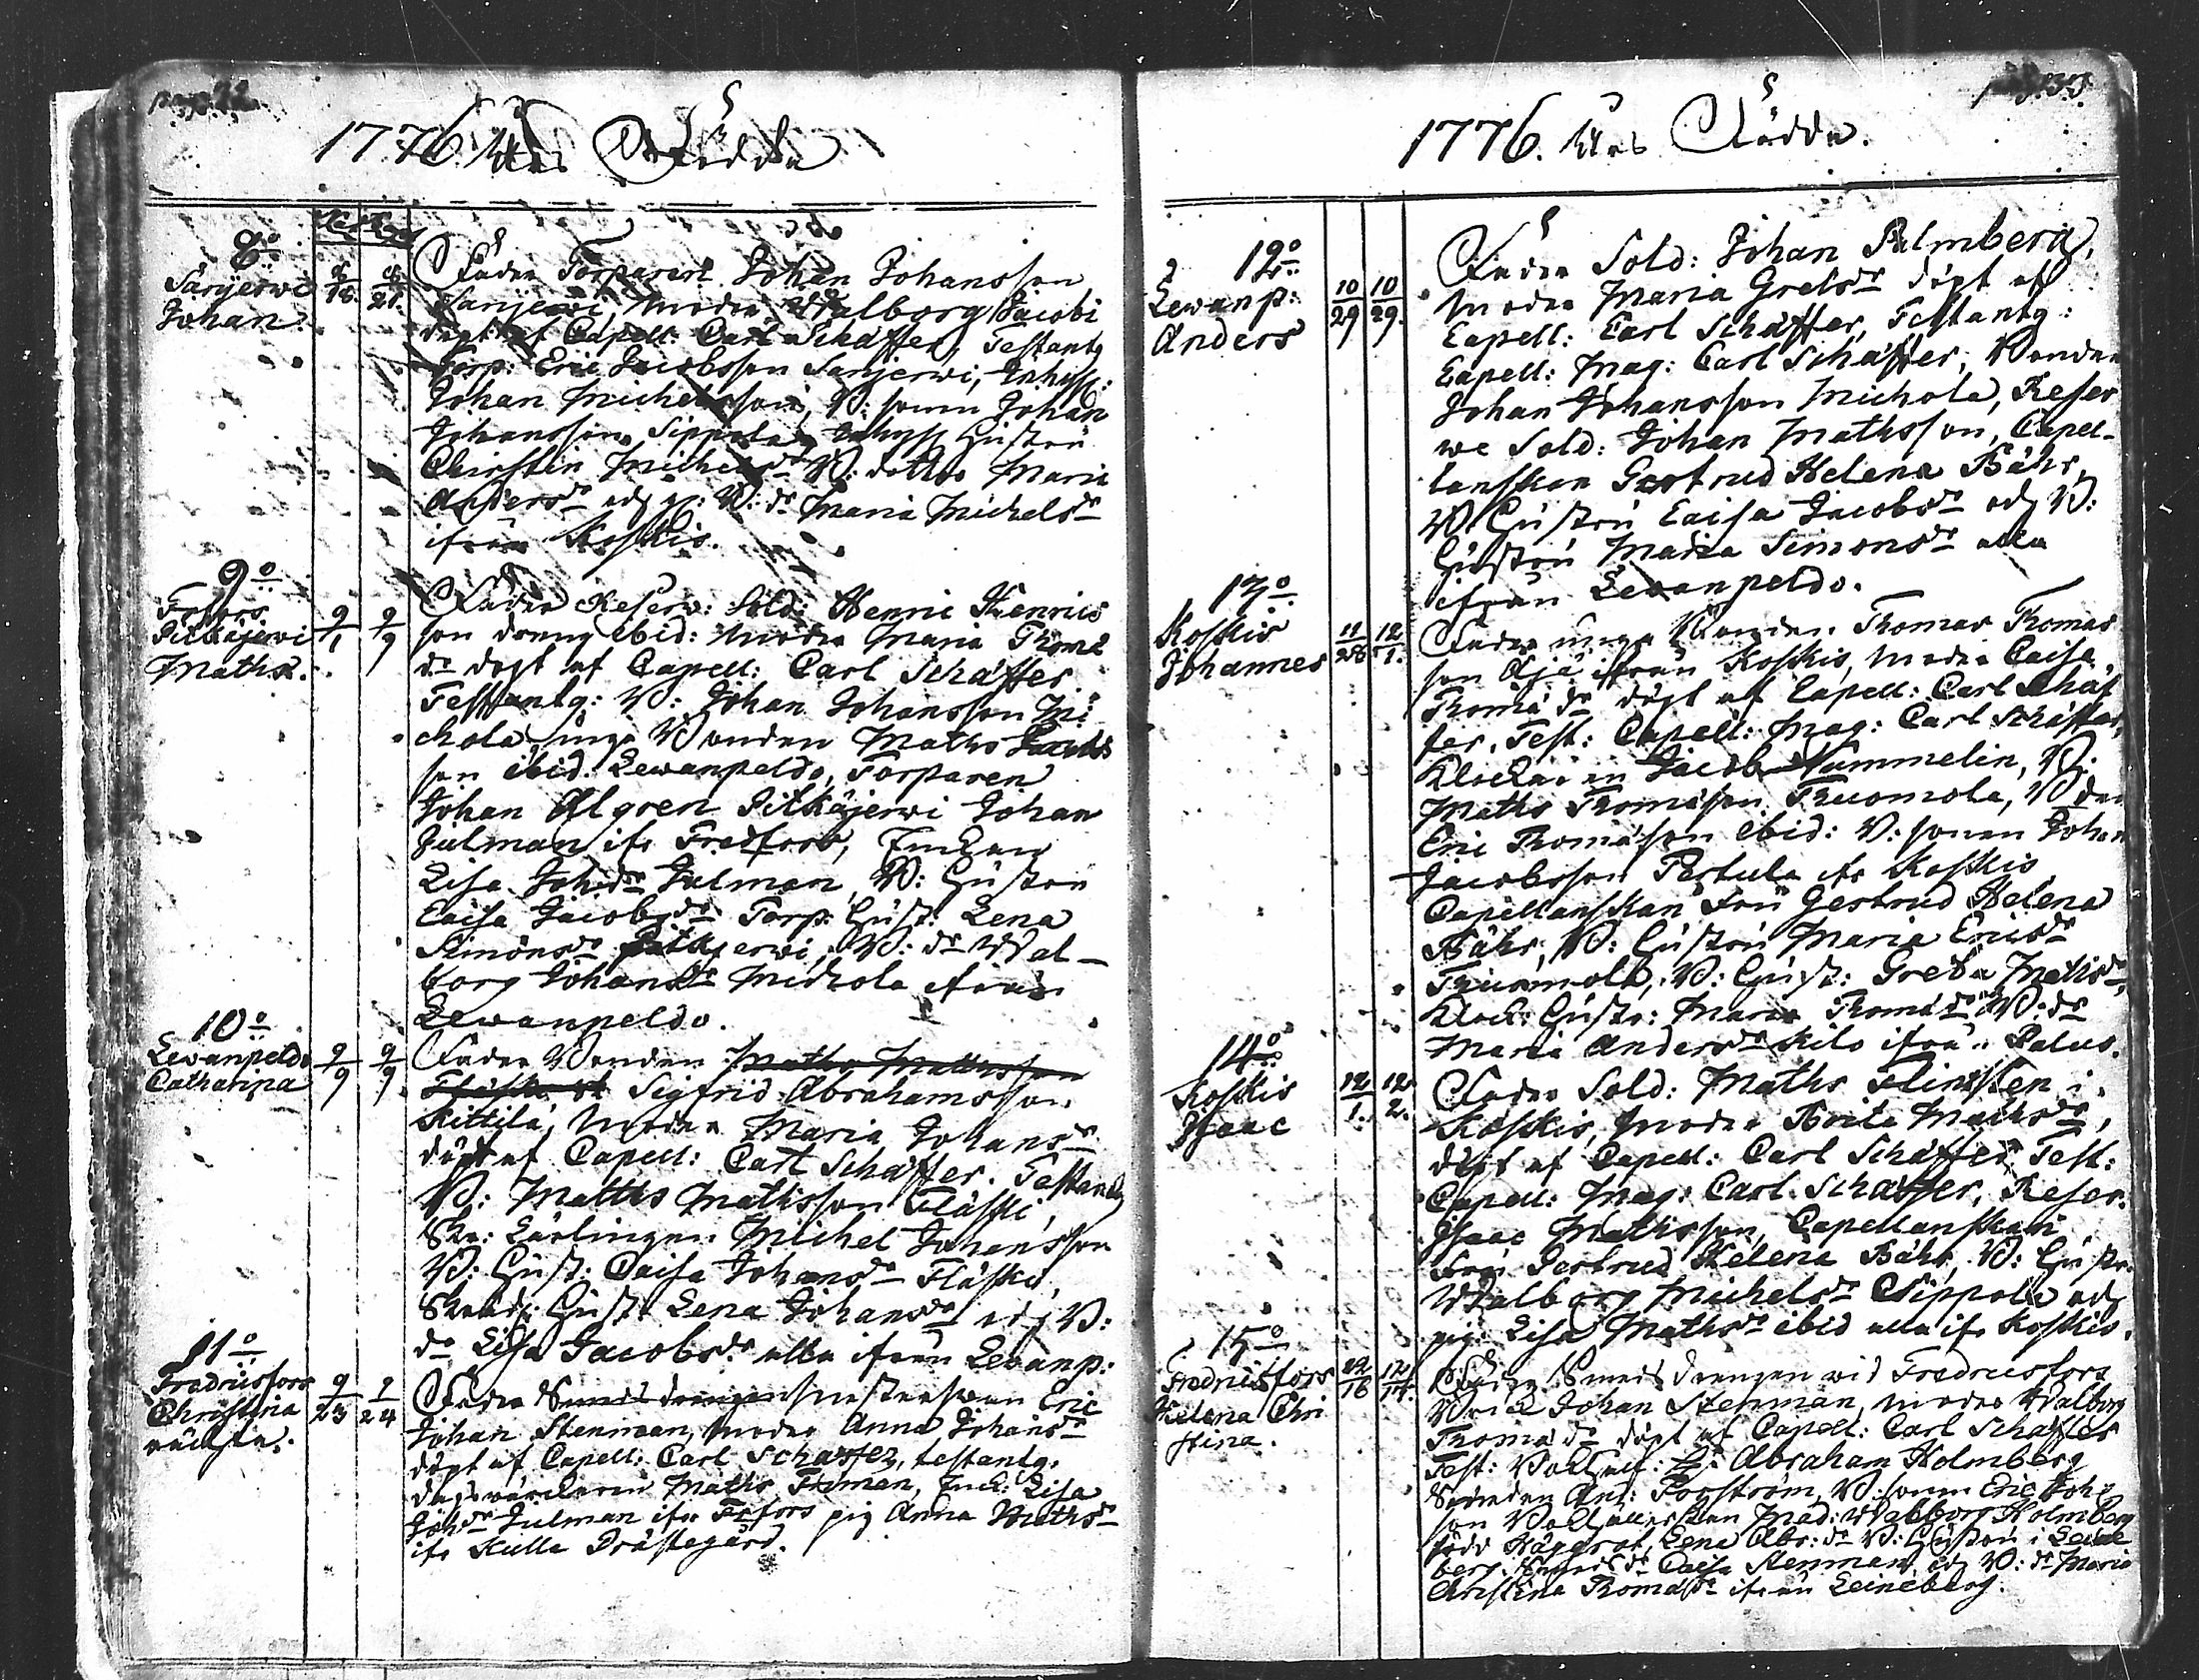 1776 Års Födde
8o
Sarijerwi
Johan
8/18. 8/21.
Fader Torparen Johan Johansson
Sarijerwi, Moder Walborg Jacobi
döpt af Capell: Carl Schäffer, Testantg
Torp: Eric Jacobsson Sarijerwi, Inhys:
Johan Michelsson, B: sonen Johan
Johansson Sippola, Inhys Hustru
Christin Michelsdr B: dotter Maria
Andersdr och B: dr Maria Michelsdr
ifrån Koskis.
9o
Frfors
Pitkäjerwi
Maths.
9/1 9/9
Fader Reserv: Sold: Henric Henrics
son dräng ibid: Moder Maria Thomæ
dr döpt af Capell: Carl Schäffer
Testantg: B: Johan Johansson Mi
chola, unga Bonden Maths
son ibid. Lewanpeldo, Torparen
Johan Algren Pitkäjerwi Johan
Julman ifr Fredfors, Enckan
Lisa Johsdr Julman, B: Hustrun
Caisa Jacobsdr Torp: Hust: Lena
Simonsdr Pitkjerwi, B: dr Wal-
borg Johansdr Michola ifrån
Lewanpeldo.
10o
Lewanpeldo
Catharina
9/9 9/9.
Fader Bonden Maths Mathsson
Sigfrid Abrahamsson
Kittilä, Moder Maria Johansdr
döpt af Capell: Carl Schäffer. Testantg
B: Maths Mathsson Fläski,
Skr: Lärlingen Michel Johansson
B: Hust: Caisa Johansdr Fläski,
Hust: Lena Johansdr och B:
dr Lisa Jacobsdr alla ifrån Lewanp:
11o
Fredricsfors
Christina
oächta.
9/23 9/24
Fader Smeds drengen Eric
Johan Stenman, moder Anna Johansdr
döpt af Capell: Carl Schäffer, testantg.
dagsverckaren Maths Friman, Enck: Lisa
Johsdr Julman ifr Frfors pig Anna Mathsdr
ifr Kulla Prästegård.
1776. Års Födde.
12o
Lewanp:
Anders
10/29 10/29.
Fader Sold: Johan Palmberg,
Moder Maria Grelsdr döpt af
Capell: Carl Schäffer, Testantg:
Capell: Mag: Carl Schäffer, Bonden
Johan Johansson Michola, Reser
we Sold: Johan Mathsson, Capel-
lanskan Gertrud Helena Bähr,
B: Hustru Caisa Jacobsdr och B:
Hustru Maria Simonsdr alla
ifrån Lewanpeldo.
13o
Koskis
Johannes
11/28 12/1.
Fader unga Bonden Thomas Thomas
son Äjä ifrån Koskis, Moder Caisa
Thomædr döpt af Capell: Carl Schäf
fer. Test: Capell: Mag: Carl Schäffer,
Klockaren Jacob Nummelin, B:
Maths Thomæson Tuomola, B den
Eric Thomæson ibid: B: sonen Johan
Jacobsson Pertula ifr Koskis
Capellanskan Fru Gertrud Helena
Bähr, B: Hustru Maria Ericsdr
Tuomola, B: Hust: Greta Mathsdr,
Klock: Hustr: Maria Thomædr B: dr
Maria Andersdr Kilo ifrån Palus.
14o
Koskis
Isaac
12/1. 12/2.
Fader Sold: Maths Flinsten i
Koskis, Moder Brita Mathsdr,
döpt af Capell: Carl Schäffer Test:
Capell: Mag: Carl Schäffer, Reser.
Isaac Mathsson, Capellanskan
Fru Gertrud Helena Bähr, B: Hustr
Walborg Michelsdr Sippola och
pig: Lisa Mathsdr ibid alla ifr Koskis.
15o
Fredricsfors
Helena Chri
stina.
12/16 12/17.
Fader Smeds drengen wid Fredricsfors
Johan Stenman, Moder Walborg
Thomædr döpt af Capell: Carl Schäffer
Test: Abraham Holmberg
An: Forström, B: sonen Eric Joh:
son Mad: Walborg Holmberg
född Hägerot, Lena Abr: dr B: Hustru i Leine
berg. Smeds dr Caisa Stenman och B: dr Maria
Christina Thomædr ifrån Leineberg.